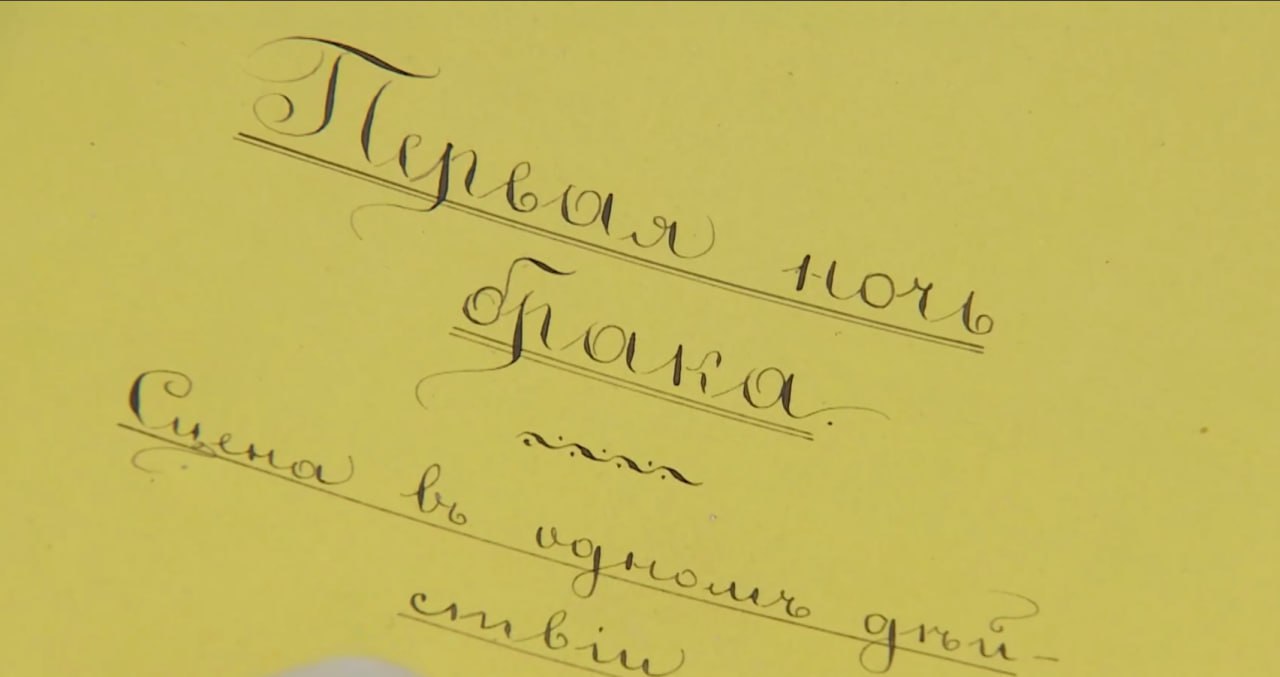 Первая ночь
брака.
Сцена въ одномъ дѣй-
ствіи